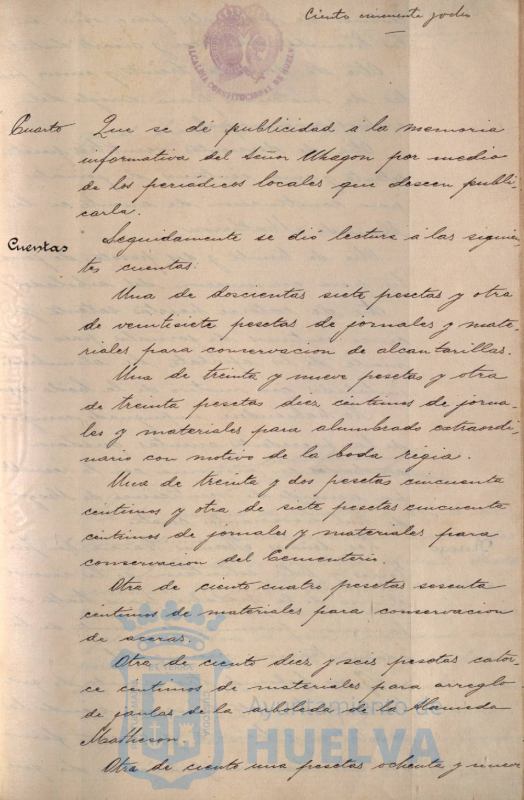 Ciento cincuenta y ocho
ALCALDIA CONSTITUCIONAL DE HUELVA
Cuarto Que se dé publicidad á la memoria
informativa del Señor Uhagon por medio
de los periódicos locales que deseen publi-
carla.
Cuentas Seguidamente se dió lectura á las siguien-
tes cuentas:
Una de doscientas siete pesetas y otra
de veintisiete pesetas de jornales y mate-
riales para conservacion de alcantarillas.
Una de treinta y nueve pesetas y otra
de treinta pesetas diez centimos de jorna-
les y materiales para alumbrado extraordi-
nario con motivo de la boda regia.
Una de treinta y dos pesetas cincuenta
centimos y otra de siete pesetas cincuenta
centimos de jornales y materiales para
conservacion del Cementerio.
Otra de ciento cuatro pesetas sesenta
centimos de materiales para conservacion
de aceras.
Otra de ciento diez y seis pesetas cator-
ce centimos de materiales para arreglo
de jaulas de la arboleda de la Alameda
Matheson.
Otra de ciento una pesetas ochenta y nueve
Ayuntamiento de
HUELVA